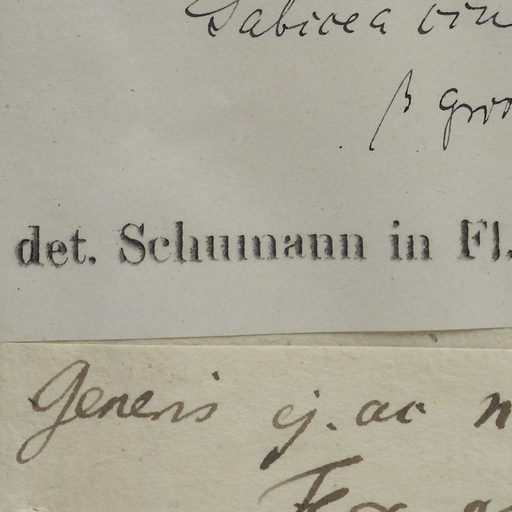 Sabicea cin
β gro
det. Schumann in Fl.
Generis ej. ac n